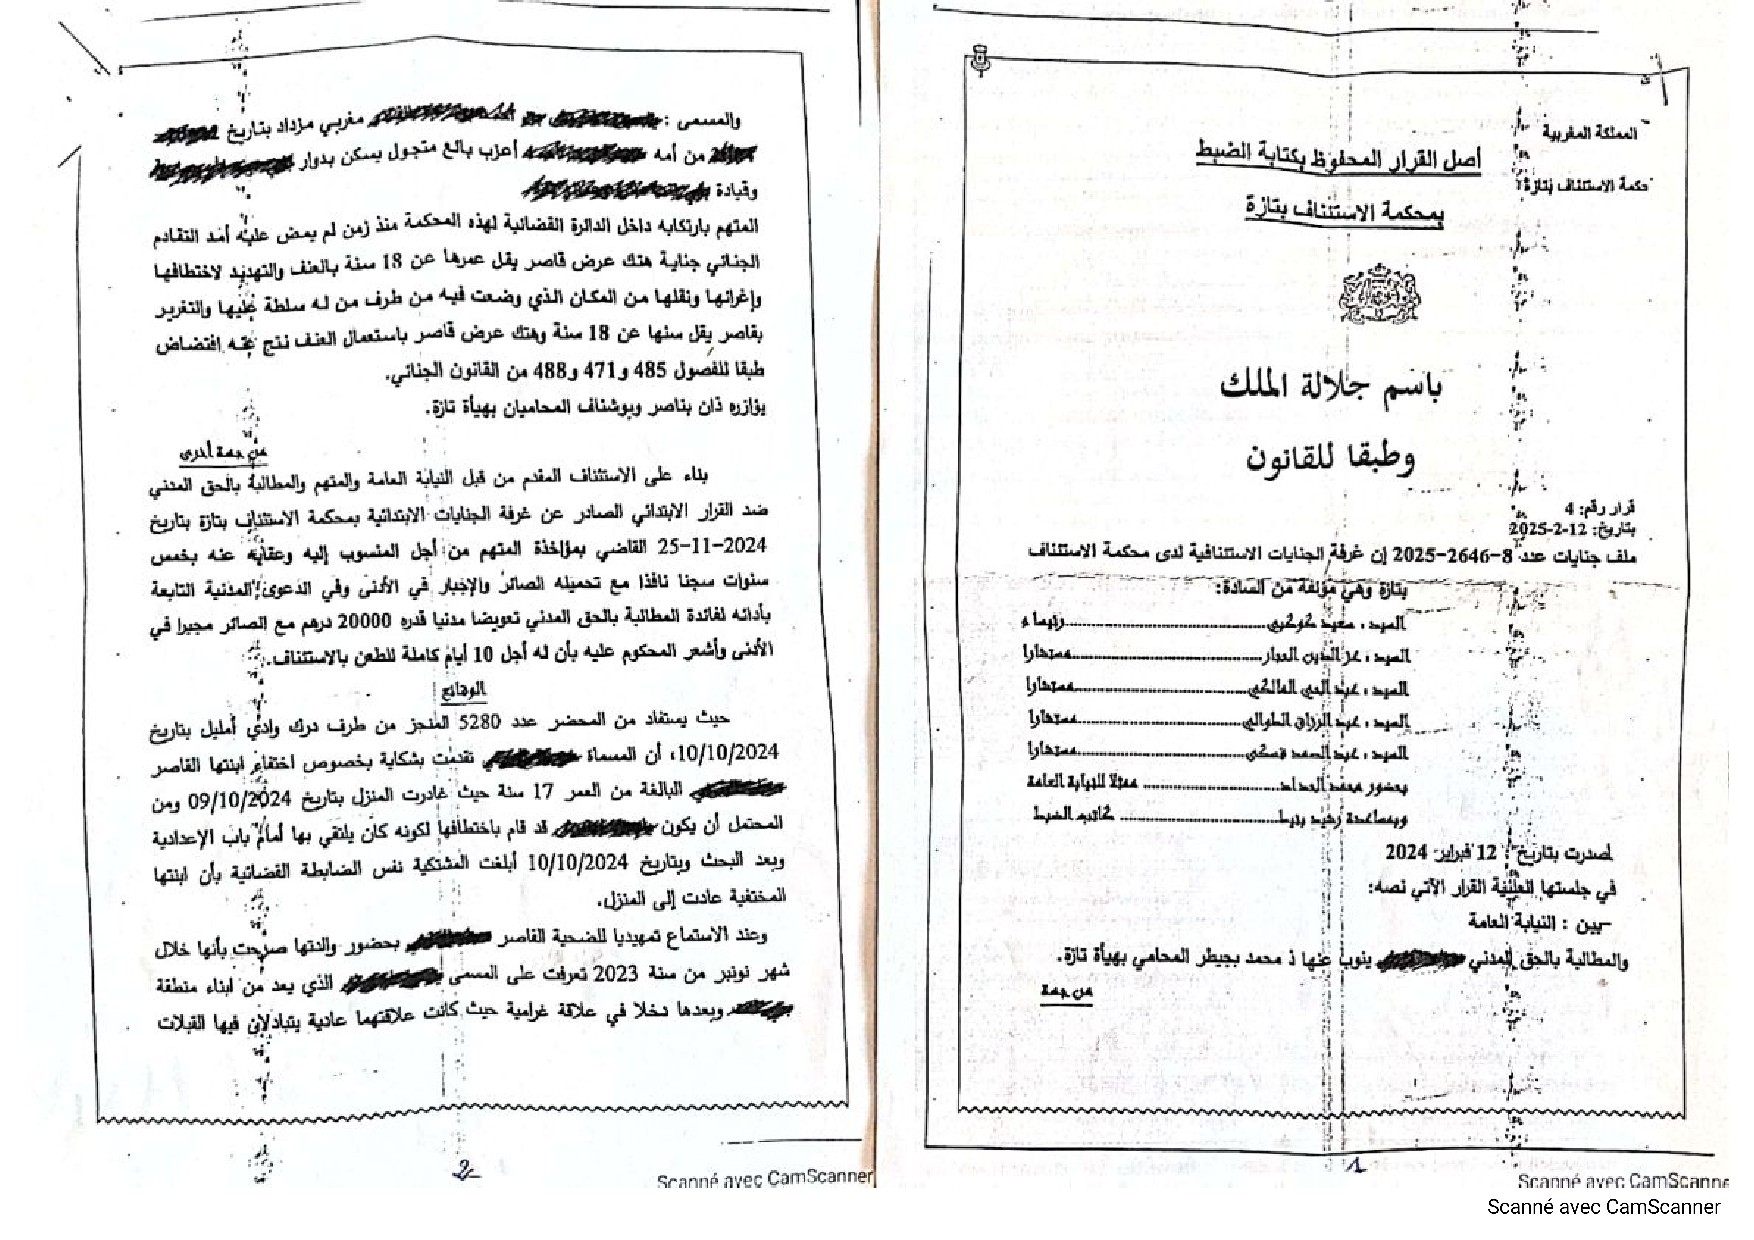 المملكة المغربية
محكمة الاستئناف بتازة
أصل القرار المحفوظ بكتابة الضبط
بمحكمة الاستئناف بتازة
باسم جلالة الملك
وطبقا للقانون
قرار رقم: 4
بتاريخ: 12-2-2025
ملف جنايات عدد 8-2646-2025 إن غرفة الجنايات الاستئنافية لدى محكمة الاستئناف
بتازة وهي مؤلفة من السادة:
السيد، سعيد كوكبي......رئيسا
السيد، عز الدين العبار......مستشارا
السيد، عبد الحي المالكي......مستشارا
السيد، عبد الرزاق الطوالي......مستشارا
السيد، عبد الصمد......مستشارا
بحضور محمد الحداد...... ممثلا للنيابة العامة
وبمساعدة رشيد...... كاتب الضبط
أصدرت بتاريخ: 12 فبراير 2024
في جلستها العلنية القرار الآتي نصه:
-بين : النيابة العامة
والمطالبة بالحق المدني ينوب عنها ذ محمد بجيطر المحامي بهيأة تازة.
من جهة
1
Scanné avec CamScanner
والمسمى : مغربي مزداد بتاريخ
من أمه أعزب بائع متجول يسكن بدوار
وقيادة
المتهم بارتكابه داخل الدائرة القضائية لهذه المحكمة منذ زمن لم يمض عليه أمد التقادم
الجنائي جناية هتك عرض قاصر يقل عمرها عن 18 سنة بالعنف والتهديد لاختطافها
وإغرائها ونقلها من المكان الذي وضعت فيه من طرف من له سلطة عليها والتغرير
بقاصر يقل سنها عن 18 سنة وهتك عرض قاصر باستعمال العنف نتج عنه افتضاض
طبقا للفصول 485 و471 و488 من القانون الجنائي.
يؤازره ذان بناصر وبوشناف المحاميان بهيأة تازة.
من جهة أخرى
بناء على الاستئناف المقدم من قبل النيابة العامة والمتهم والمطالبة بالحق المدني
ضد القرار الابتدائي الصادر عن غرفة الجنايات الابتدائية بمحكمة الاستئناف بتازة بتاريخ
25-11-2024 القاضي بمؤاخذة المتهم من أجل المنسوب إليه وعقابه عنه بخمس
سنوات سجنا نافذا مع تحميله الصائر والإجبار في الأدنى وفي الدعوى المدنية التابعة
بأدائه لفائدة المطالبة بالحق المدني تعويضا مدنيا قدره 20000 درهم مع الصائر مجبرا في
الأدنى وأشعر المحكوم عليه بأن له أجل 10 أيام كاملة للطعن بالاستئناف.
الوقائع
حيث يستفاد من المحضر عدد 5280 المنجز من طرف درك وادي أمليل بتاريخ
10/10/2024، أن المسماة تقدمت بشكاية بخصوص اختفاء ابنتها القاصر
البالغة من العمر 17 سنة حيث غادرت المنزل بتاريخ 09/10/2024 ومن
المحتمل أن يكون قد قام باختطافها لكونه كان يلتقي بها أمام باب الإعدادية
وبعد البحث وبتاريخ 10/10/2024 أبلغت المشتكية نفس الضابطة القضائية بأن ابنتها
المختفية عادت إلى المنزل.
وعند الاستماع تمهيديا للضحية القاصر بحضور والدتها صرحت بأنها خلال
شهر نونبر من سنة 2023 تعرفت على المسمى الذي يعد من ابناء منطقة
وبعدها دخلا في علاقة غرامية حيث كانت علاقتهما عادية يتبادلان فيها القبلات
2
Scanné avec CamScanner
Scanné avec CamScanner